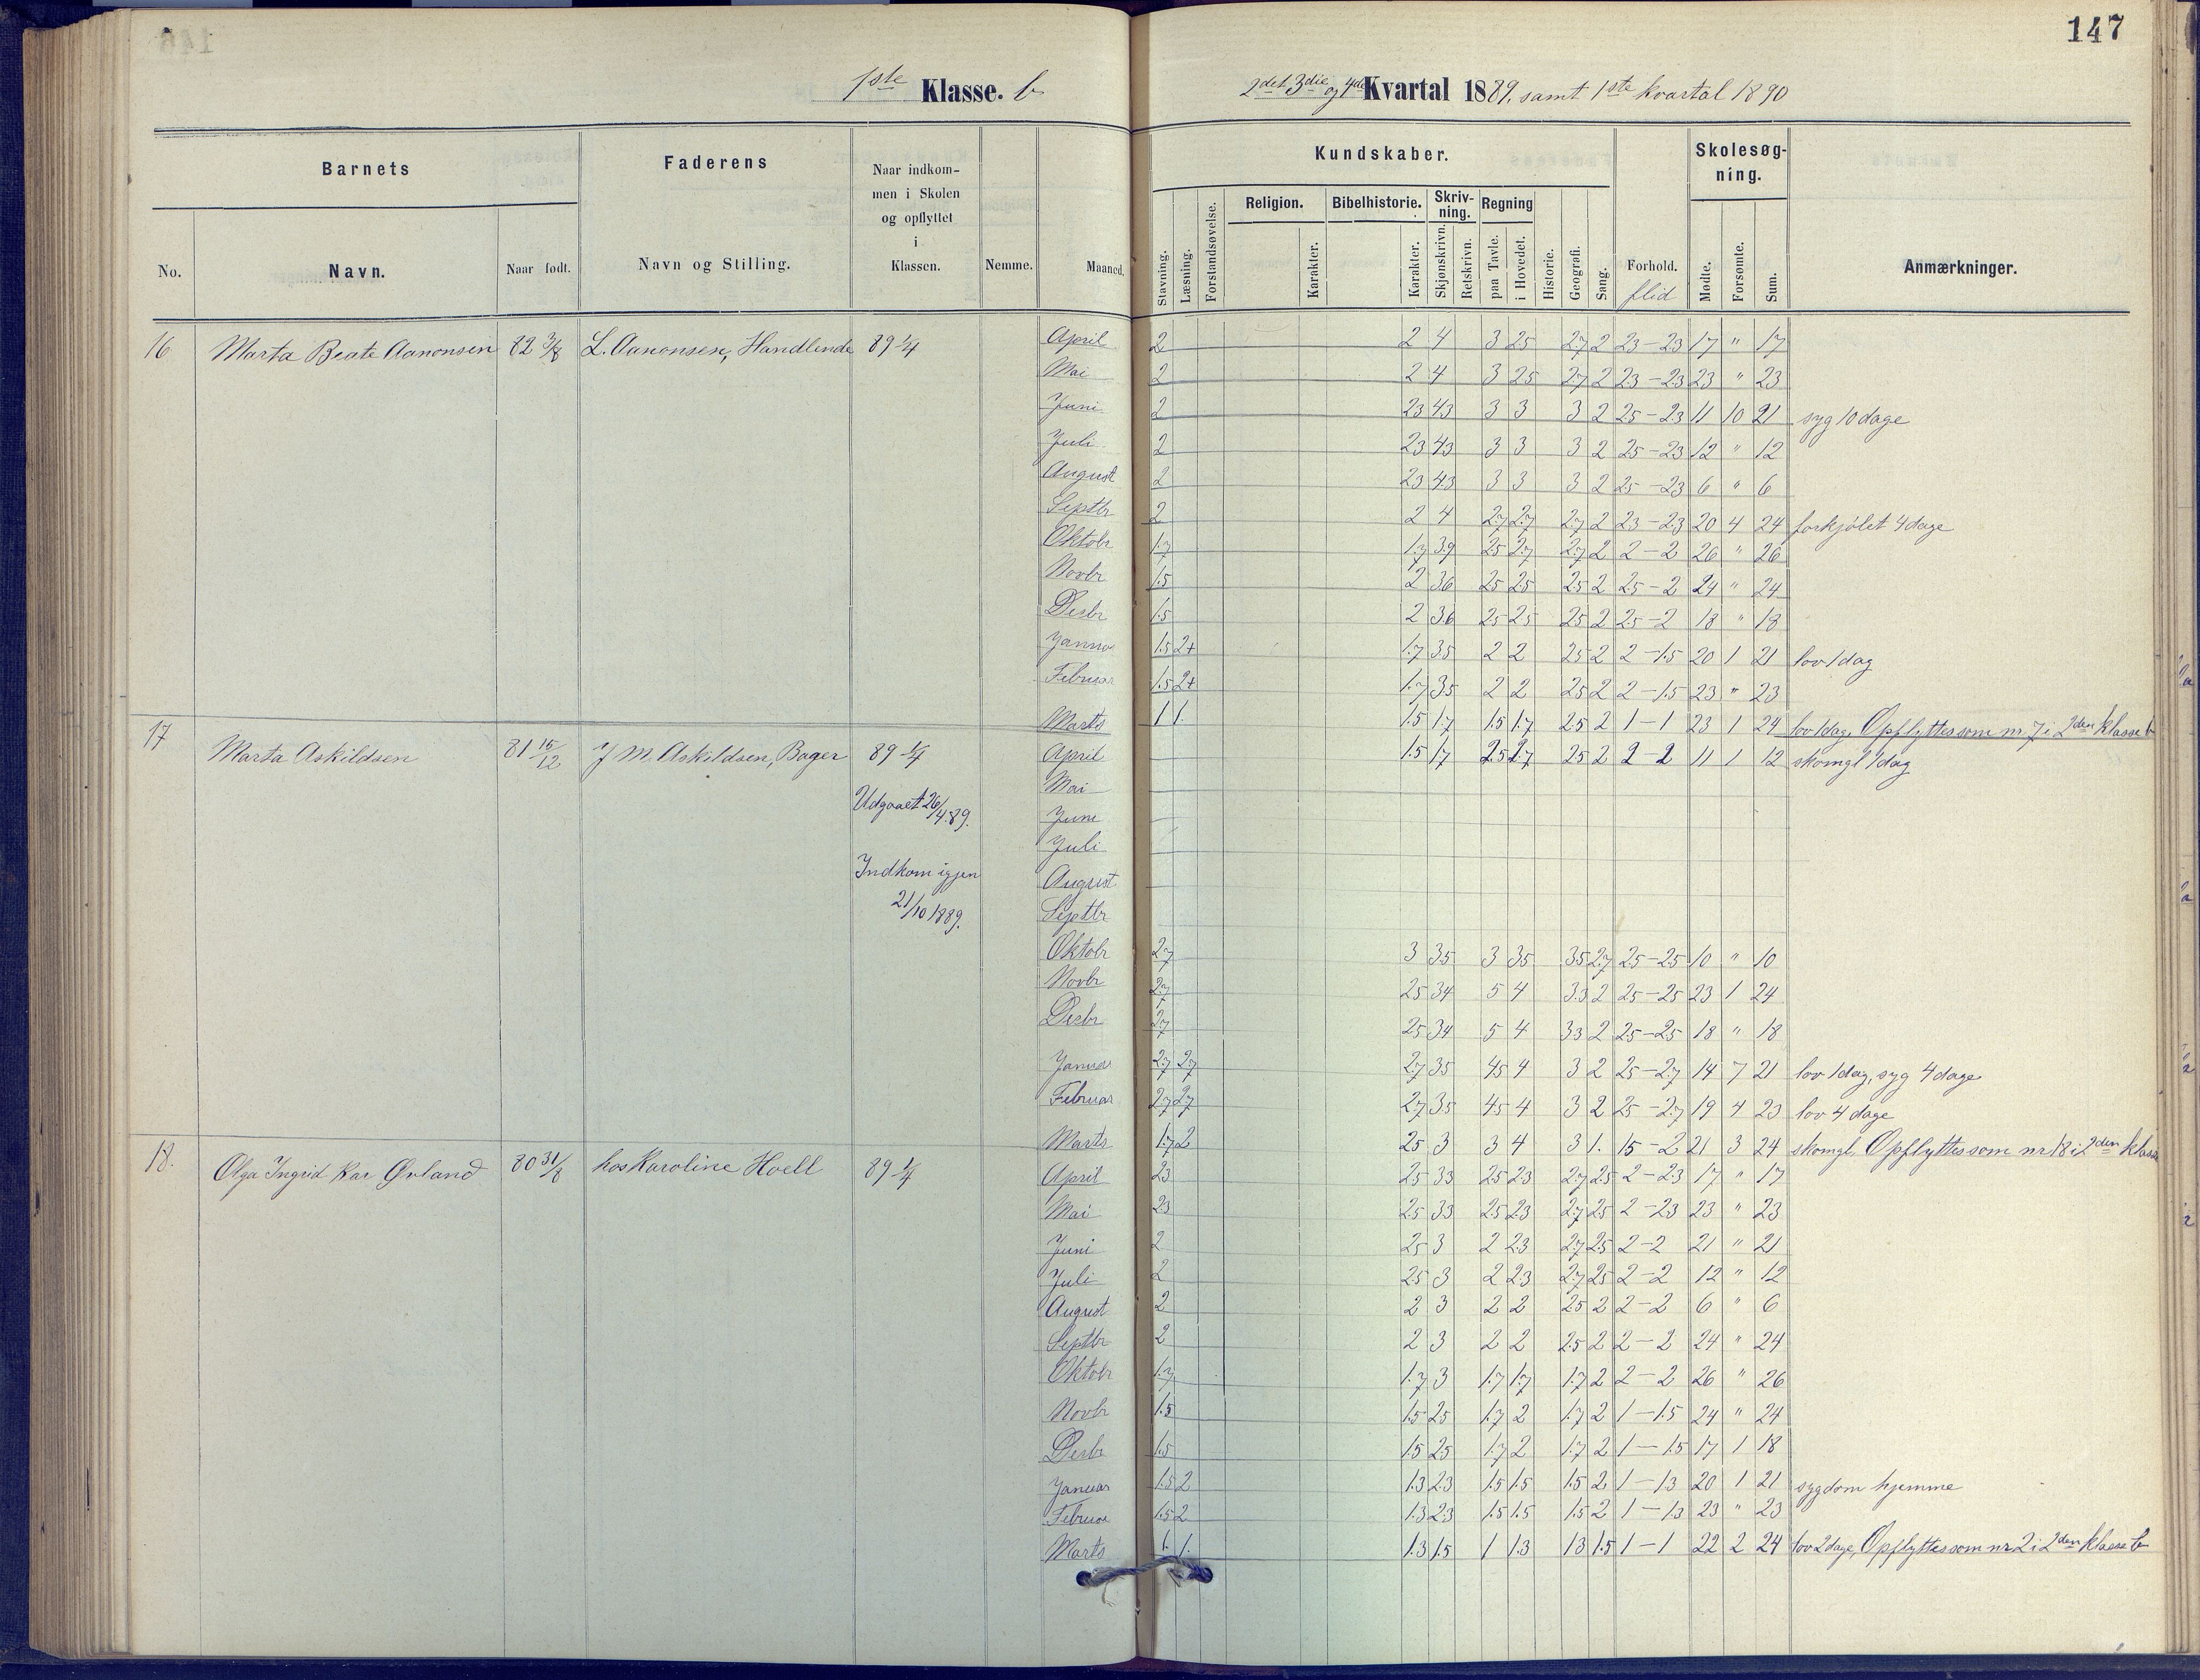 147
1ste Klasse. b
2det 3die og 4de Kvartal 1889. samt 1ste kvartal 1890
Barnets
Faderens
Naar indkommen i Skolen og opflyttet i Klassen.
Kundskaber.
Skolesøgning.
Religion. Bibelhistorie. Skrivning. Regning
No. Navn. Naar født. Navn og Stilling. Nemme. Maaned. Stavning. Læsning. Forstandsøvelse. Karakter. Karakter. Skjønskrivn. Retskrivn. paa Tavle. i Hovedet. Historie. Geografi. Sang. Forhold. flid Mødte. Forsømte. Sum. Anmærkninger.
16 Marta Beate Aanonsen 82 3/8 L. Aanonsen, Handlende 89 1/4 April 2 2 4 3 25 27 2 23-23 17 " 17
Mai 2 2 4 3 25 27 2 23-23 23 " 23
Juni 2 23 43 3 3 3 2 25-23 11 10 21 syg 10 dage
Juli 2 23 43 3 3 3 2 25-23 12 " 12
August 2 23 43 3 3 3 2 25-23 6 " 6
Septbr 2 2 4 27 27 27 2 23-23 20 4 24 forkjølet 4 dage
Oktobr 1.7 1.7 39 25 27 27 2 2-2 26 " 26
Novbr 1.5 2 36 25 25 25 2 25-2 24 " 24
Desbr 1.5 2 36 25 25 25 2 25-2 18 " 18
Januar 1.5 2+ 1.7 35 2 2 25 2 2-1.5 20 1 21 lov 1 dag
Februar 1.5 2+ 1.7 35 2 2 25 2 2-1.5 23 " 23
Marts 1 1. 1.5 1.7 15 1.7 25 2 1-1 23 1 24 lov 1 dag, Opflyttes som nr 7 i 2den klasse b
17 Marta Askildsen 81 15/12 J M. Askildsen, Bager 89 1/4 April 1.5 17 25 27 25 2 2-2 11 1 12 skomgl 1 dag
Mai
Udgaaet 26/4.89. June
Juli
Indkom igjen August
21/10 1889. Septbr
Oktobr 27 3 35 3 35 35 27 25-25 10 " 10
Novbr 27 25 34 5 4 3.3 2 25-25 23 1 24
Desbr 27 25 34 5 4 33 2 25-25 18 " 18
Januar 27 27 27 35 45 4 3 2 25-27 14 7 21 lov 1 dag, syg 4 dage
Februar 27 27 27 35 45 4 3 2 25-27 19 4 23 lov 4 dage
Marts 1.7 2 25 3 3 4 3 1. 15-2 21 3 24 skomgl. Opflyttes som nr 18 i 2den klasse
18. Olga Ingrid Kar Ørland 80 31/8 hos Karoline Hoell 89 1/4 April 23 25 33 25 23 27 25 2-23 17 " 17
Mai 23 25 33 25 23 27 25 2-23 23 " 23
Juni 2 25 3 2 23 27 25 2-2 21 " 21
Juli 2 25 3 2 23 27 25 2-2 12 " 12
August 2 2 3 2 2 25 2 2-2 6 " 6
Septbr 2 2 3 2 2 25 2 2-2 24 " 24
Oktobr 1.7 1.7 3 1.7 1.7 1.7 2 2-2 26 " 26
Novbr 1.5 1.5 25 1.7 2 1.7 2 1-1.5 24 " 24
Desbr 1.5 15 25 1.7 2 1.7 2 1-1.5 17 1 18
Januar 1.5 2 1.3 23 1.5 1.5 1.5 2 1-1.3 20 1 21 sygdom hjemme
Februar 1.5 2 1.3 23 1.5 1.5 1.5 2 1-1.3 23 " 23
Marts 1. 1. 1.3 1.5 1 1.3 13 1.5 1-1 22 2 24 lov 2 dage, Opflyttes som nr 2 i 2den klasse b